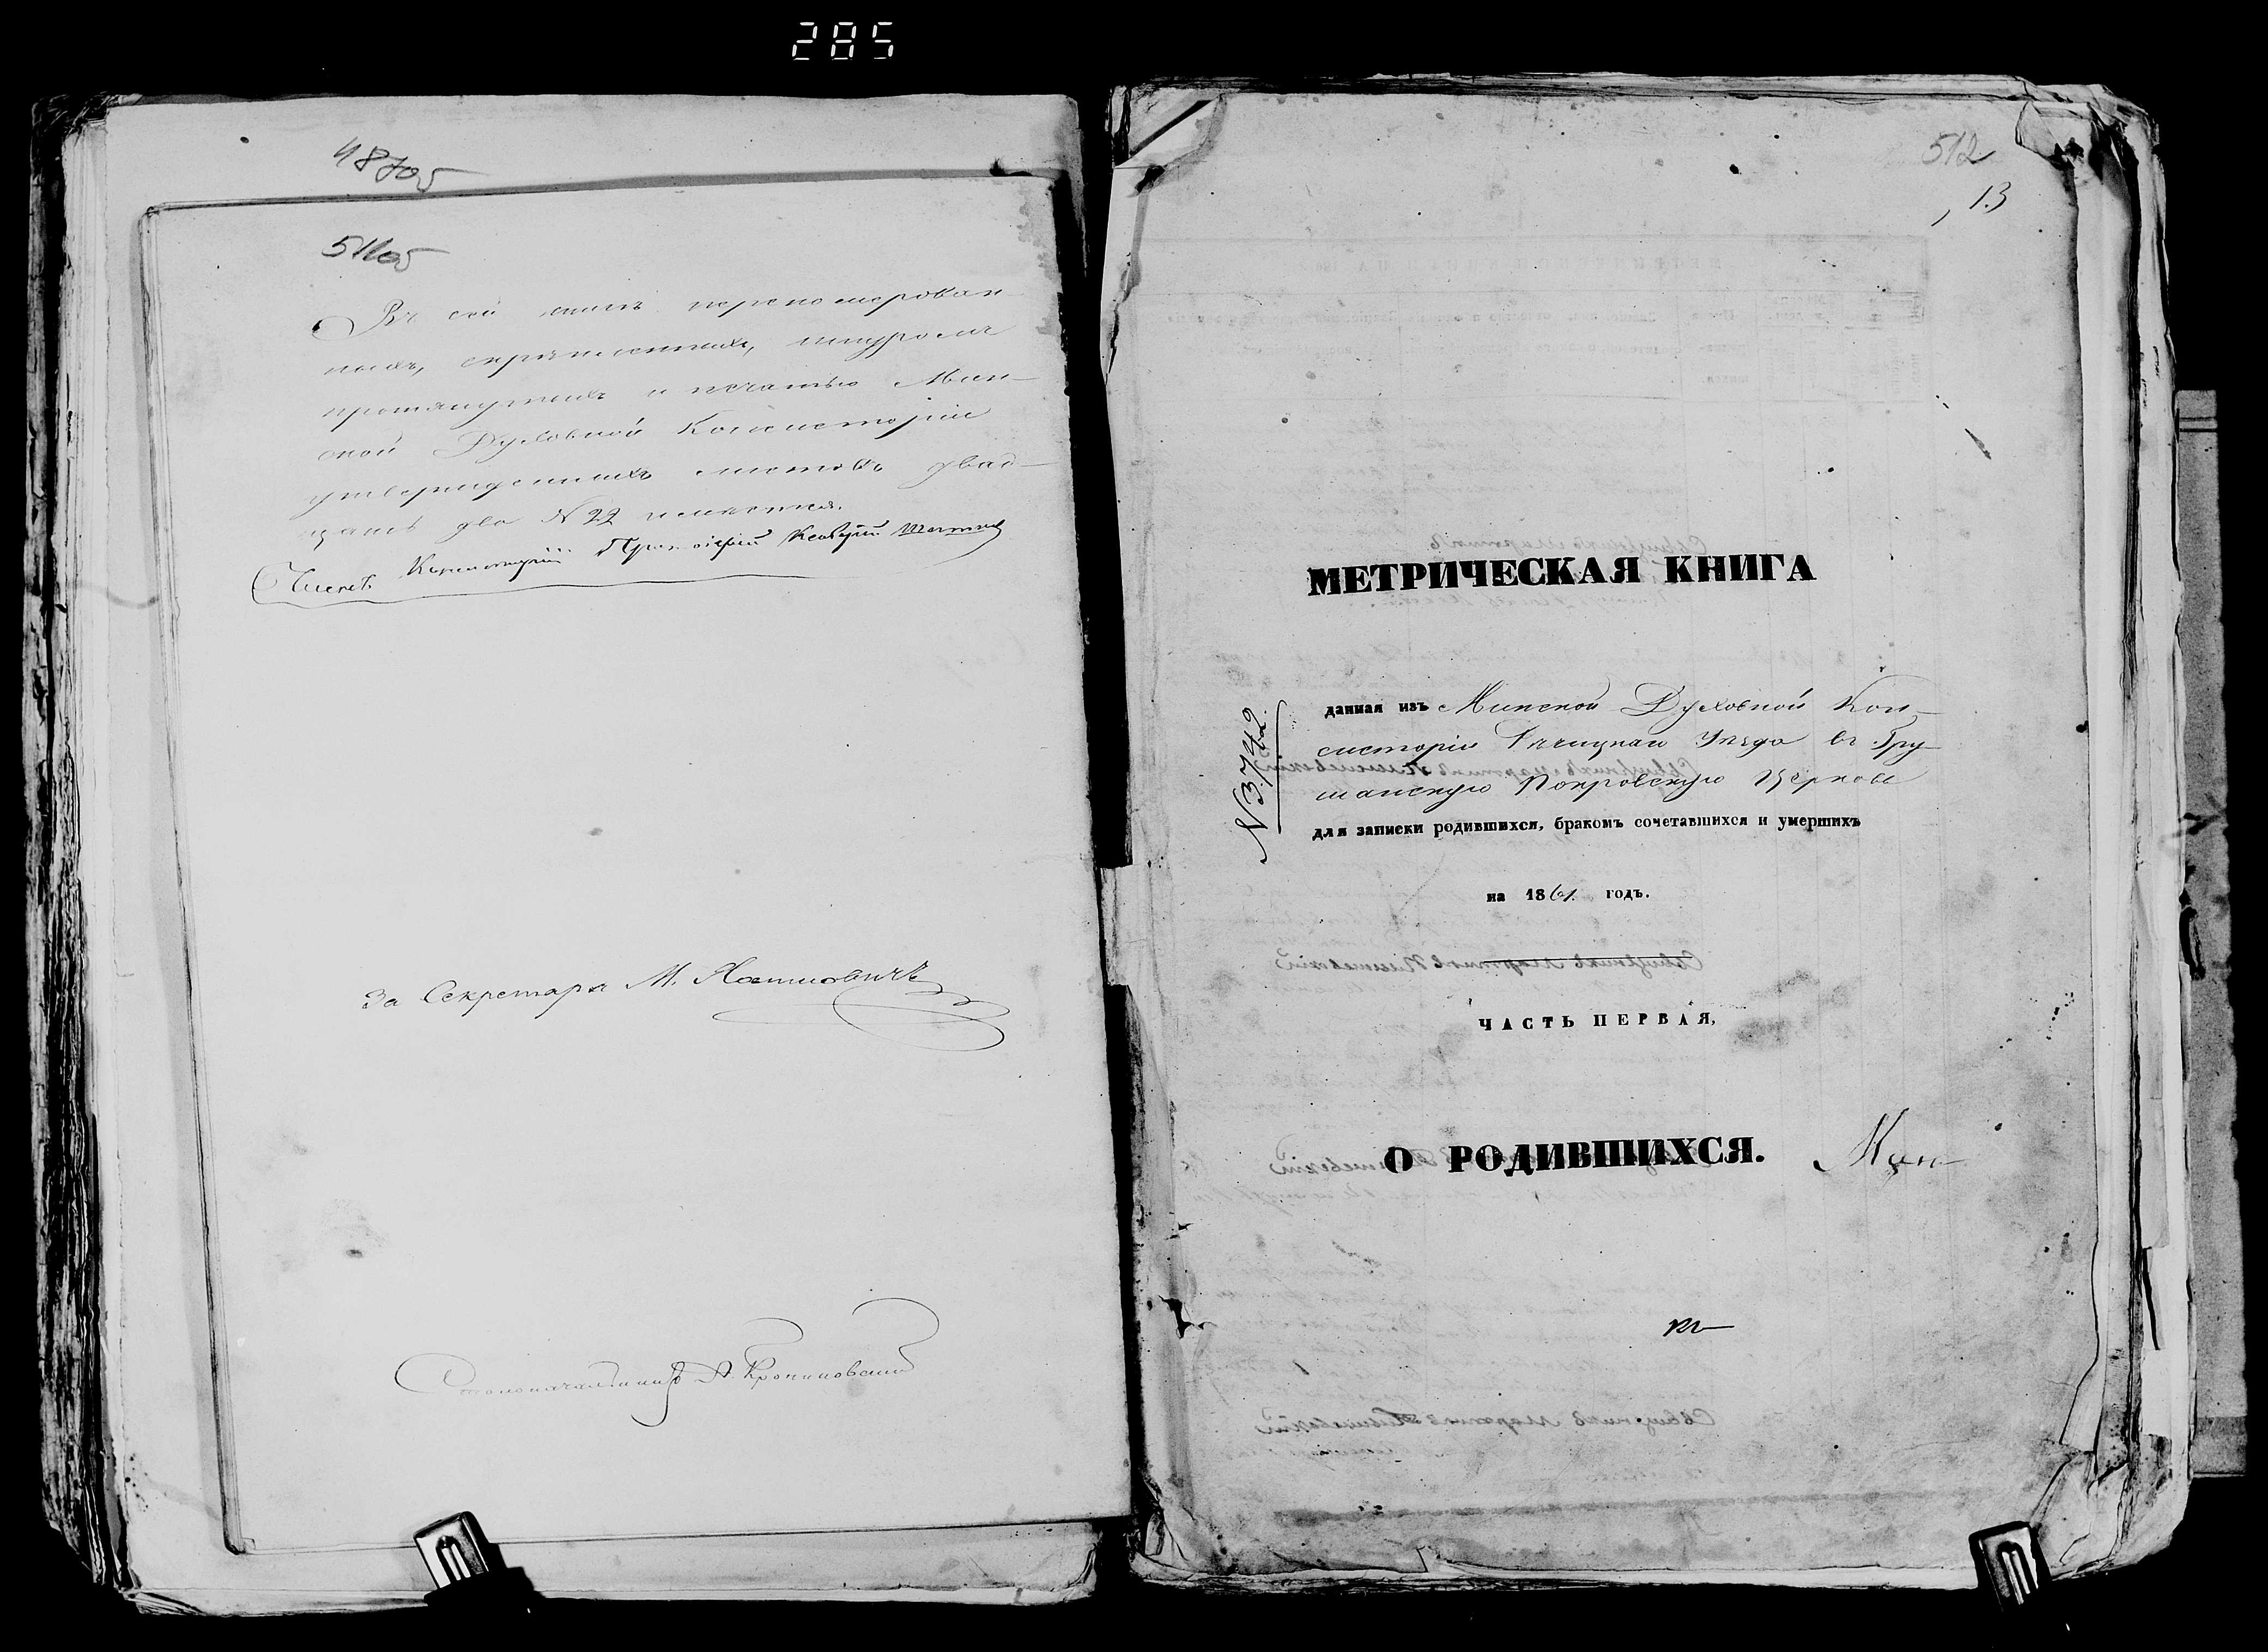 285
487об
511об
Въ сей книгѣ перенумерован
ныхъ, скрѣпленныхъ, шнуромъ
протянутыхъ и печатью Мин-
ской Духовной Консисторіи
утвержденныхъ листовъ двад-
цать два № 22 имѣется.
Членъ Консисторіи Протоіерей
За Секретаря М.
Столоначальникъ А.
512
13
МЕТРИЧЕСКАЯ КНИГА
№ 3742.
данная изъ Минской Духовной Кон-
систоріи Рѣчицкаго Уѣзда въ Гру-
шанскую Покровскую Церковь
для записки родившихся, бракомъ сочетавшихся и умершихъ
на 1861. годъ.
ЧАСТЬ ПЕРВАЯ,
О РОДИВШИХСЯ.